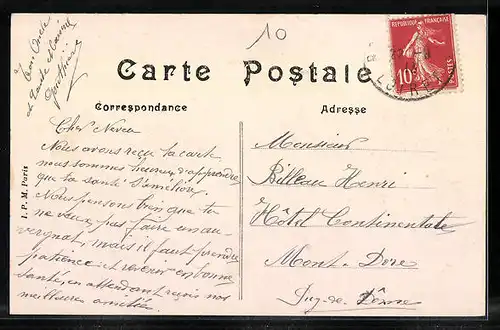 10
Ton Oncle
et Tante
REPUBLIQUE FRANÇAISE
10
POSTES
Carte Postale
Correspondance
Adresse
Cher Neveu
Nous avons reçu ta carte
nous sommes heureux d'apprendre
que ta santé s'améliore.
Nous pensons bien que tu
ne veux pas faire un au-
vergnat, mais il faut prendre
patience et revenir en bonne
santé, en attendant reçois nos
meilleures amitiés.
Monsieur
Billeau Henri
Hôtel Continentale
Mont-Dore
Puy-de-Dôme
I. P. M. Paris